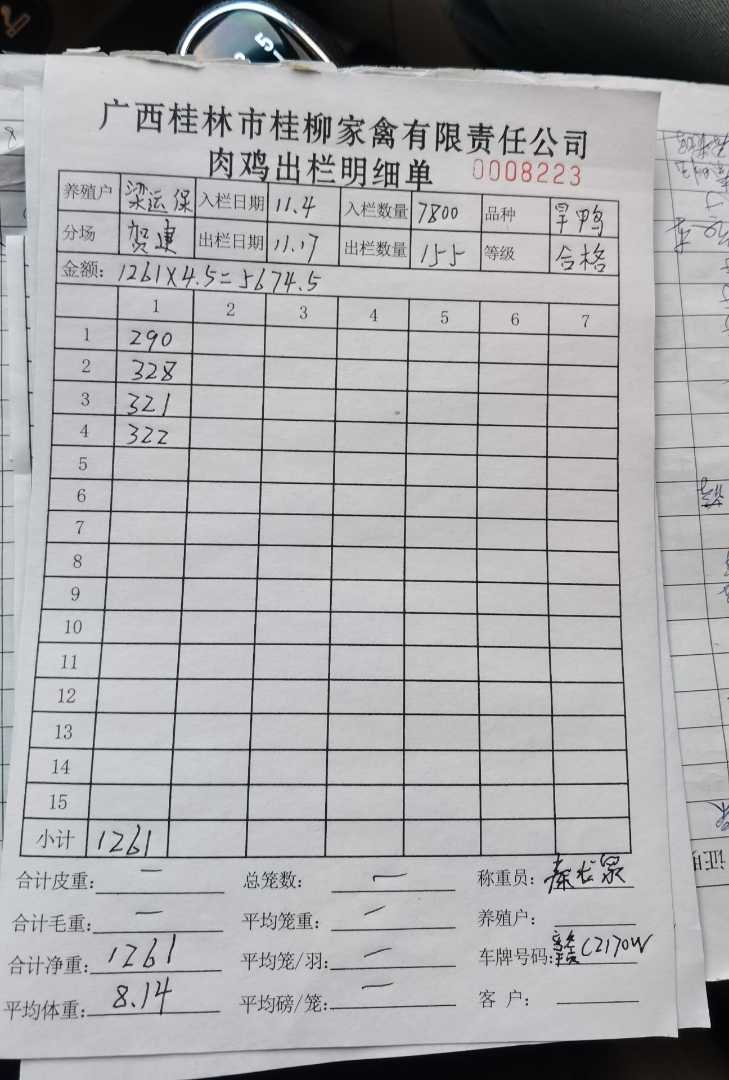 广西桂林市桂柳家禽有限责任公司
肉鸡出栏明细单 0008223
养殖户 梁运保 入栏日期 11.4 入栏数量 7800 品种 旱鸭
分场 贺建 出栏日期 11.17 出栏数量 155 等级 合格
金额: 1261X4.5=5674.5
1 2 3 4 5 6 7
1 290
2 328
3 321
4 322
5
6
7
8
9
10
11
12
13
14
15
小计 1261
合计皮重: — 总笼数: — 称重员:
合计毛重: — 平均笼重: — 养殖户:
合计净重: 1261 平均笼/羽: — 车牌号码: C2170W
平均体重: 8.14 平均磅/笼: — 客户: